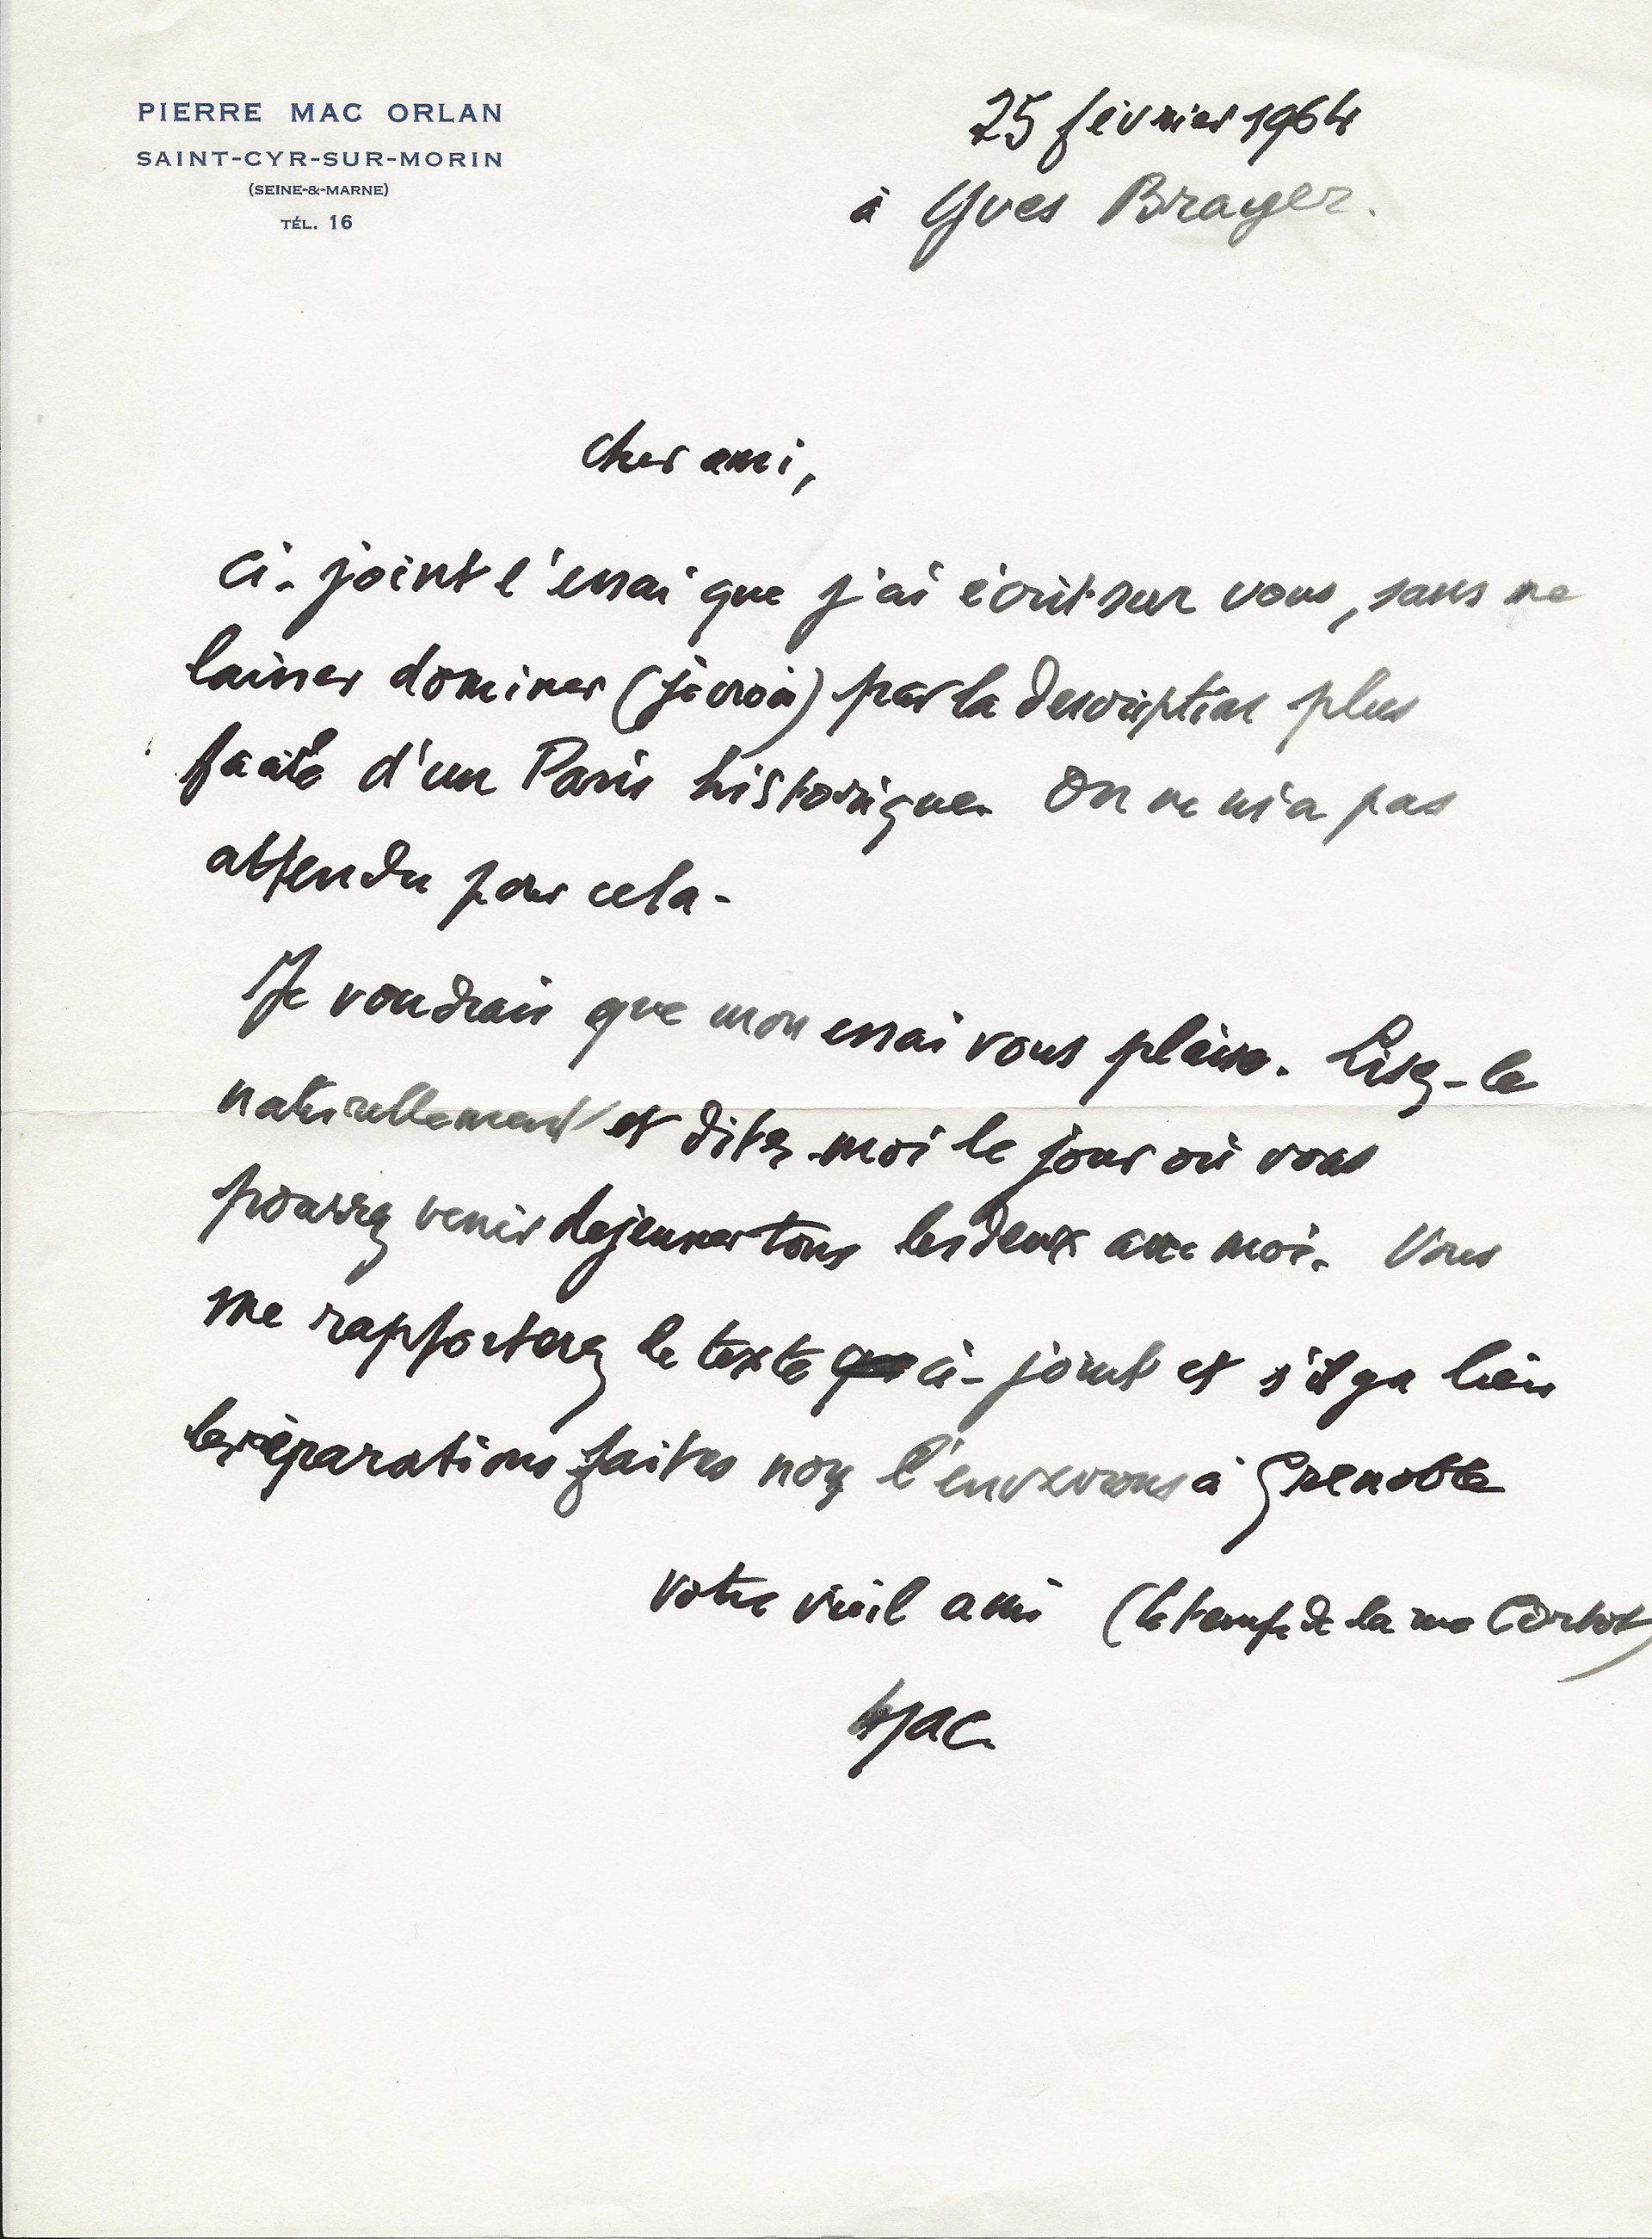 PIERRE MAC ORLAN
SAINT-CYR-SUR-MORIN
(SEINE-&-MARNE)
TÉL. 16
25 février 1964
à Yves Brayer.
Cher ami,
Ci-joint l'essai que j'ai écrit sur vous, sans me
laisser dominer (je crois) par la description plus
facile d'un Paris historique. On ne m'a pas
attendu pour cela-
Je voudrais que mon essai vous plaise. Lisez-le
naturellement et dites-moi le jour où vous
pourrez venir dejeuner tous les deux avec moi. Vous
me rapporterez le texte ci-joint et s'il y a lieu
les réparations faites nous l'enverrons à Grenoble
votre vieil ami (le temps de la rue Cortot)
Mac